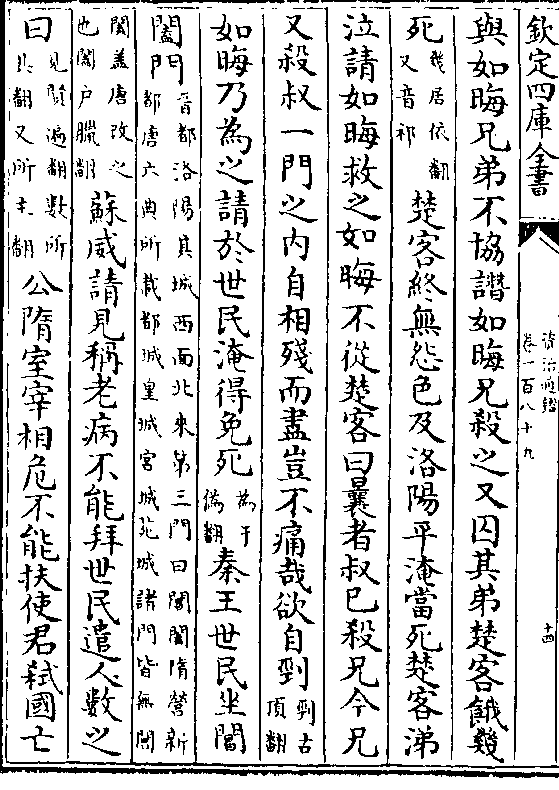 欽定四庫全書
資治通鑑
卷一百八十九
十四
與如晦兄弟不協譖如晦兄殺之又囚其弟楚客餓幾
死幾居依翻又音祁楚客終無怨色及洛陽平淹當死楚客涕
泣請如晦救之如晦不從楚客曰曩者叔已殺兄今兄
又殺叔一門之内自相殘而盡豈不痛哉欲自剄剄古頂翻
如晦乃為之請於世民淹得免死為于偽翻秦王世民坐閶
闔門晉都洛陽其城西面北來第三門曰閶闔隋營新都唐六典所載都城皇城宫城苑城諸門皆無閶
闔盖唐改之也闔户臘翻蘇威請見稱老病不能拜世民遣人數之
曰見賢遍翻數所具翻又所主翻公隋室宰相危不能扶使君弑國亡